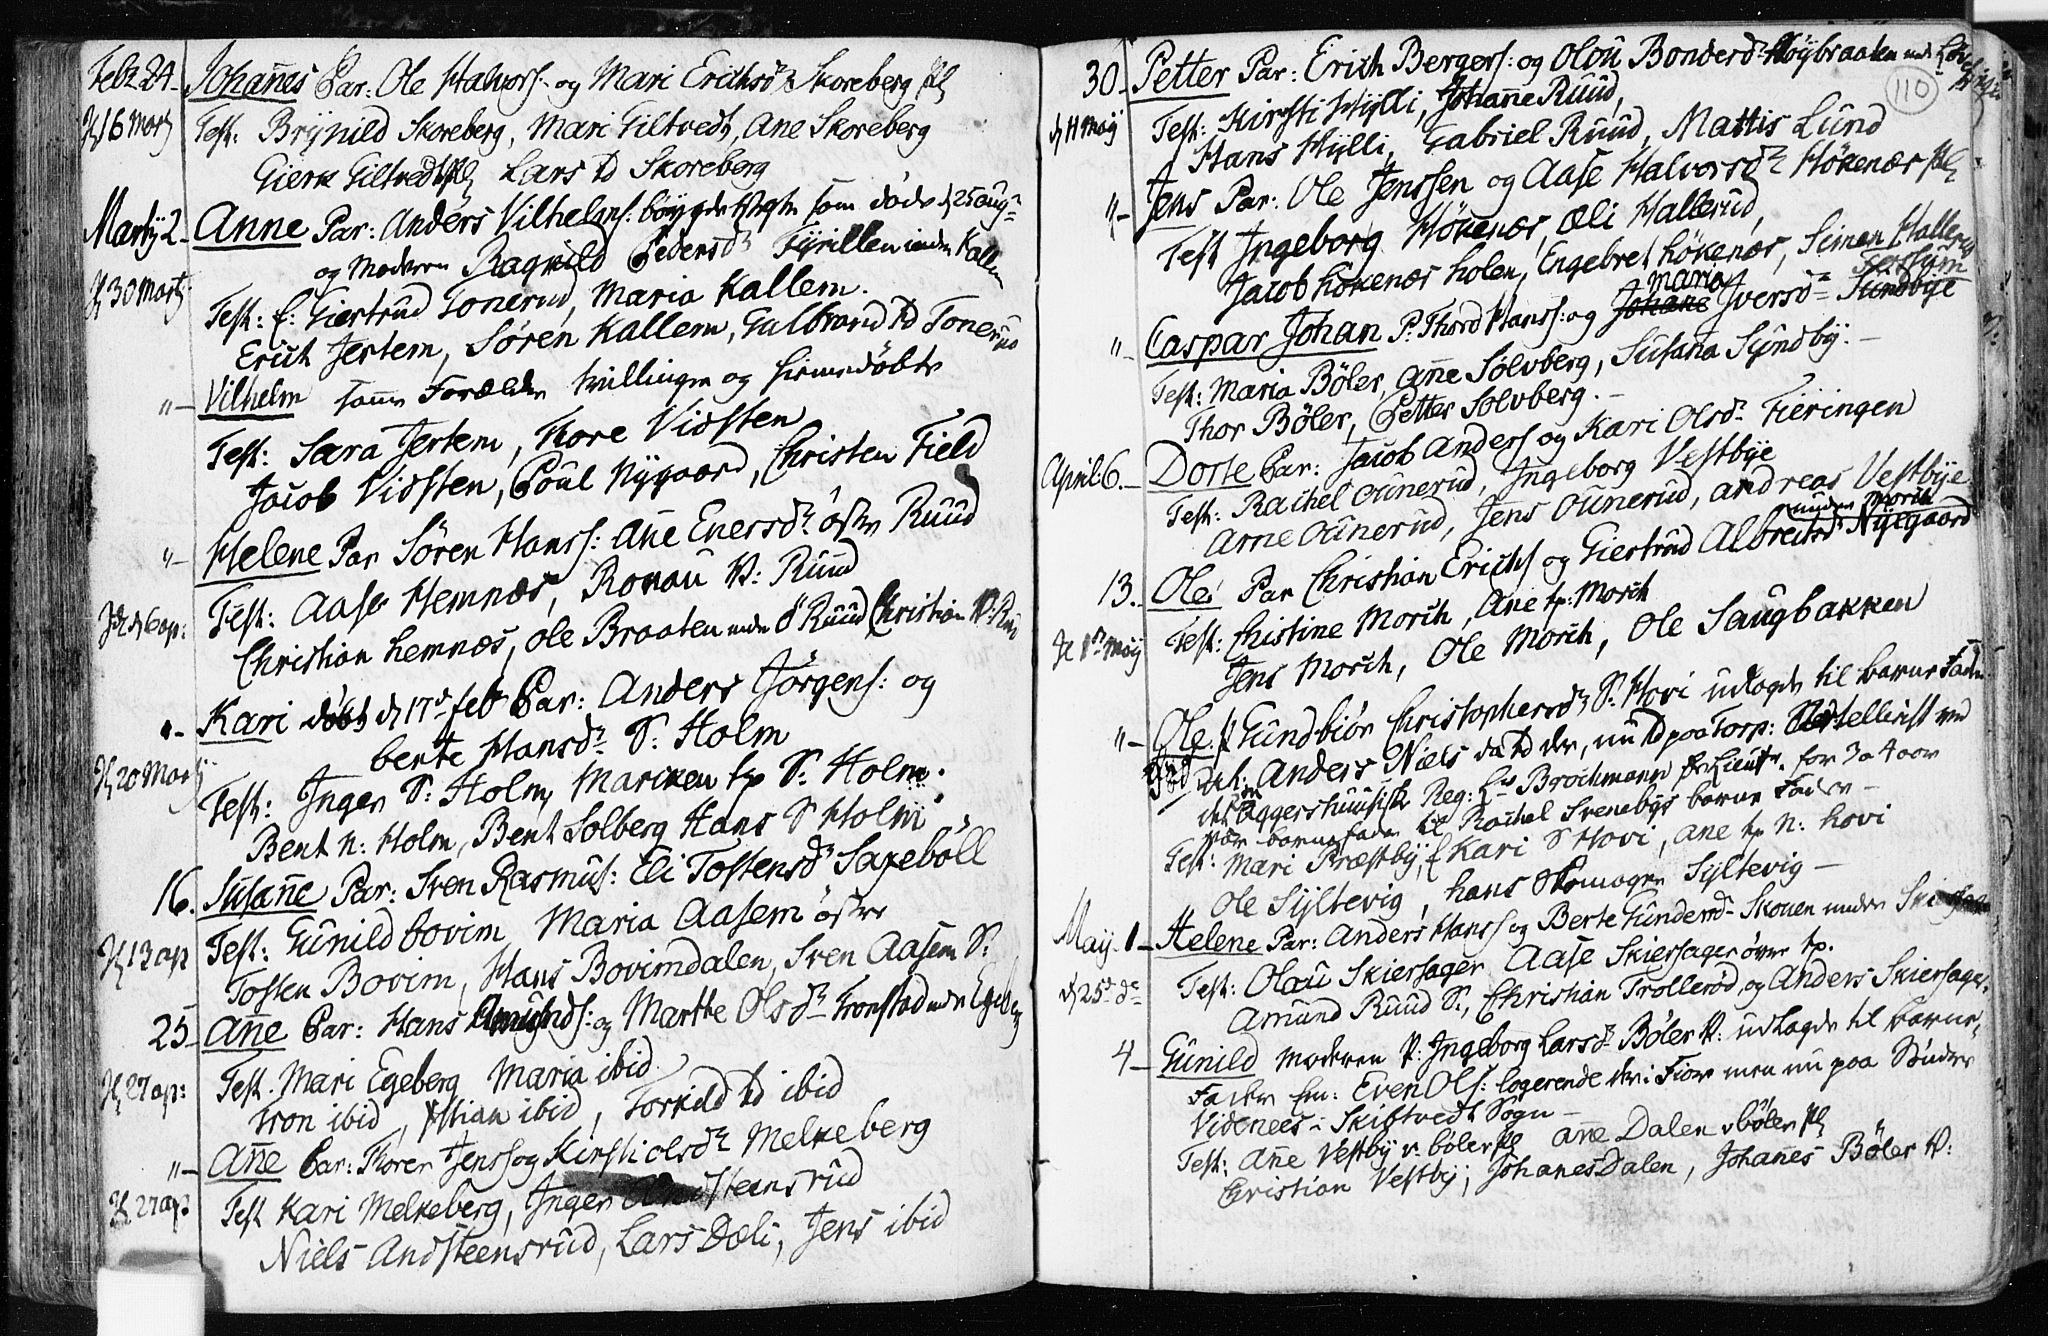 Febr 24 Johañes Par: Ole Halvors: og Mari Erichsdr Skoreberg Pl
16 Marty Test: Brynild Skoreberg, Mari Giltvedt, Ane Skoreberg
Gierk Giltvedt Lars td Skoreberg
Marty 2 Anne Par: Anders Vilhelms: som døde d 25 aug
og Moderen Ragnild Pedersdr Fyrillen under Kallem
30 Marty Test: f: Giertrud Tonerud, Maria Kallem.
Erich Jertem, Søren Kallem, Gulbrand td Tonerud
"- Vilhelm samme Forældre tvillinger og hiemedøbte
Test: Sara Jertem, Thore Vidsten
Jacob Vidsten, Poul Nygaard, Christen Field
"- Helene Par Søren Hanss: Añe Enersdr østre Ruud
6 ap: Test: Aase Hemnæs, Ronau V: Ruud
Christian hemnæs, Ole Braaten under Ø Ruud Christian V: Ruud
"- Kari døbt d 17de feb Par: Anders Jørgens: og
berte Hansdr S: Holm
20 Marty Test: Inger S: Holm, Mariken tp S: Holm.
Bent N: Holm, Bent Solberg Hans S Holm
16. Susañe Par: Sven Rasmus: Eli Tostensdr Saxebøll
13 ap Test: Gunild bovim Maria Aasem østre
Tosten Bovim, Hans Bovimdalen, Sven Aasem S:
25 Añe Par: Hans Amunds: og Marthe Olsdr Tronstad under Egeberg
27 ap: Test. Mari Egeberg Maria ibid.
Tron ibid, Stian ibid, Torkild td ibid
"- Añe Par: Thorer Jenss og Kirsti olsdr Melkeberg
27 ap: Test Kari Melkeberg, Inger Andsteensrud
Niels Andsteensrud, Lars Dæli, Jens ibid
110
30 Petter Par: Erich Bergers: og Olou Bondersdr Høybraaten under
d 11 May Test: Kirsti Hylli, Johañe Ruud,
Hans Hylli, Gabriel Ruud, Mattis Lund
"- Jens Par: Ole Jenssen og Aase Halvorsdr Høkenær Pl
Test Ingeborg Høkenær, Æli Hallerud,
Jacob høkenær holen, Engebret høkenær, Simen Hallerud
"- Caspar Johan P: Thord Hanss: og Johane Maria Iversdr Sundbye
Test: Maria Bøler, Añe Sølvberg, Susana Syndby.
Thor Bøler, Petter Sølvberg.
April 6. Dorte Par: Jacob Anders og Kari Olsdr Fieringen
Test: Rachel Ounerud, Ingeborg Vestbye
Arne Ounerud, Jens Ounerud, Andreas Vestbye
under Morch
13. Ole Par Christian Erichs og Giertrud Albrechtsdr Nygaard
May Test: Christine Morch, Ane tp: Morch
Jens Morch, Ole Morch, Ole Saugbakken
"- Ole Gundbiør Christophersdr S: Hovi udlagde til barne Fader
Anders Niels da td der, nu td paa Torp:
det Aggershuusiske Reg: Brochmann for 3 a 4 aar
var barnefader til Rachel Svenebys barne Fader
Test: Mari Præstby, Kari S Hovi, Ane tp N: hovi
Ole Syltevig, hans Skomager Syltevig
May 1 Helene Par: Anders Hans og Berte Gundersdr Skouen under
d 25de Test: Olau Skiersager Aase Skiersager øvre tp.
Amund Ruud S:, Christian Trollerød, og Anders Skiersager.
4 Gunild Moderen P: Ingeborg Larsdr Bøler V: udlagde til barne
Fader Em: Even Ols: logerende der i Fior men nu paa Søndre
Videnees i Skiftvedt Sogn
Test: Añe Vestby v. bøler Pl Añe Dalen bøler Pl
Christian Vestby, Johanes Dalen, Johañes Bøler V: